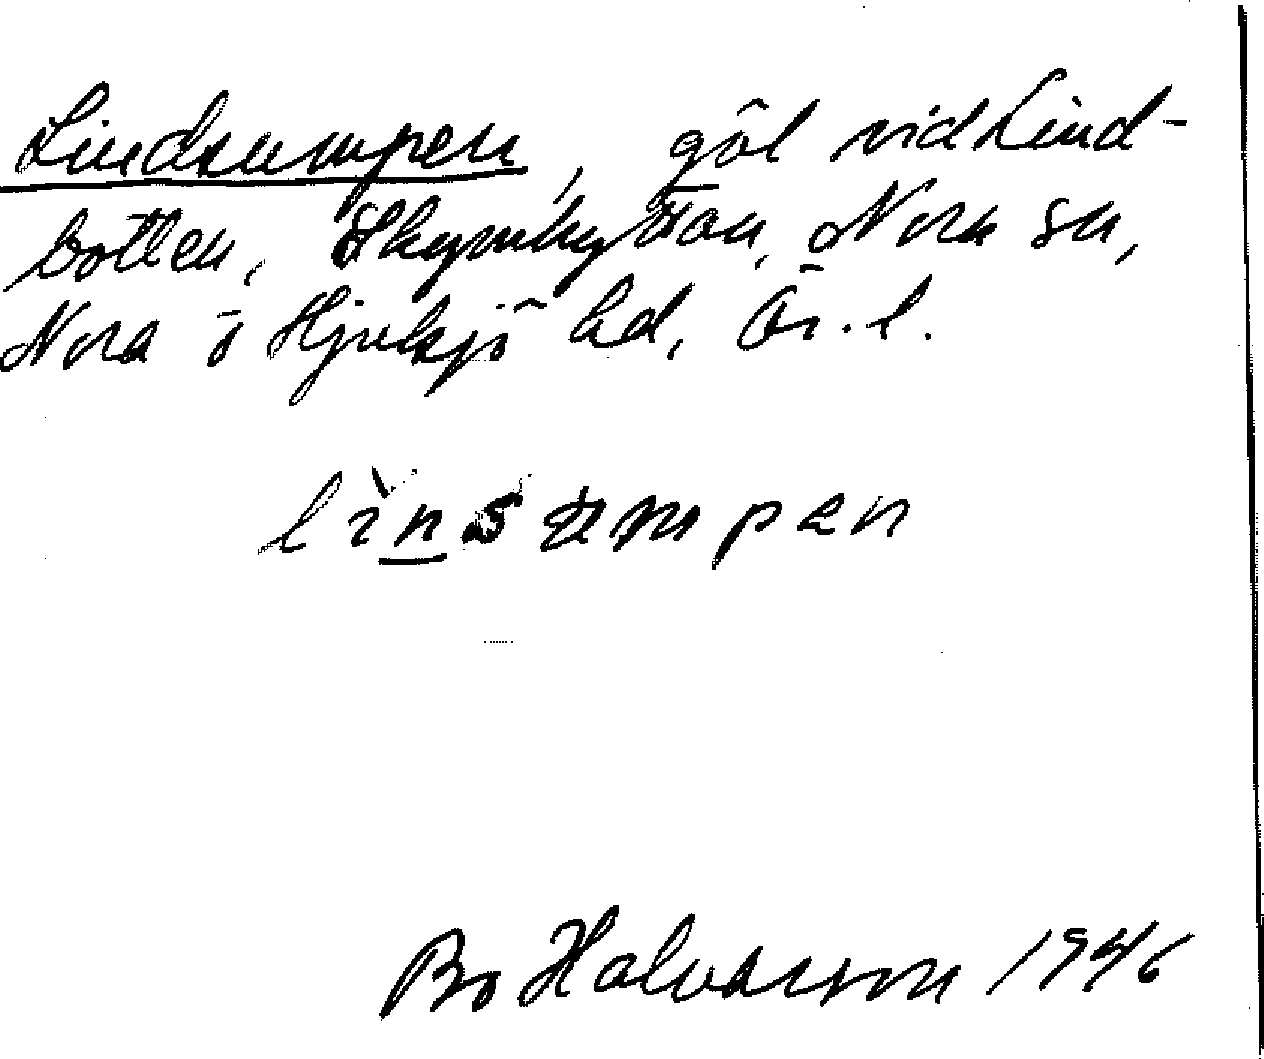 Lindsumpen, göl vid Lind-
botten, Skymhyttan, Nora sn,
Nora o Hjulsjö hd, Ör. l.
lìnsumpen
Bo Halvarson 1946